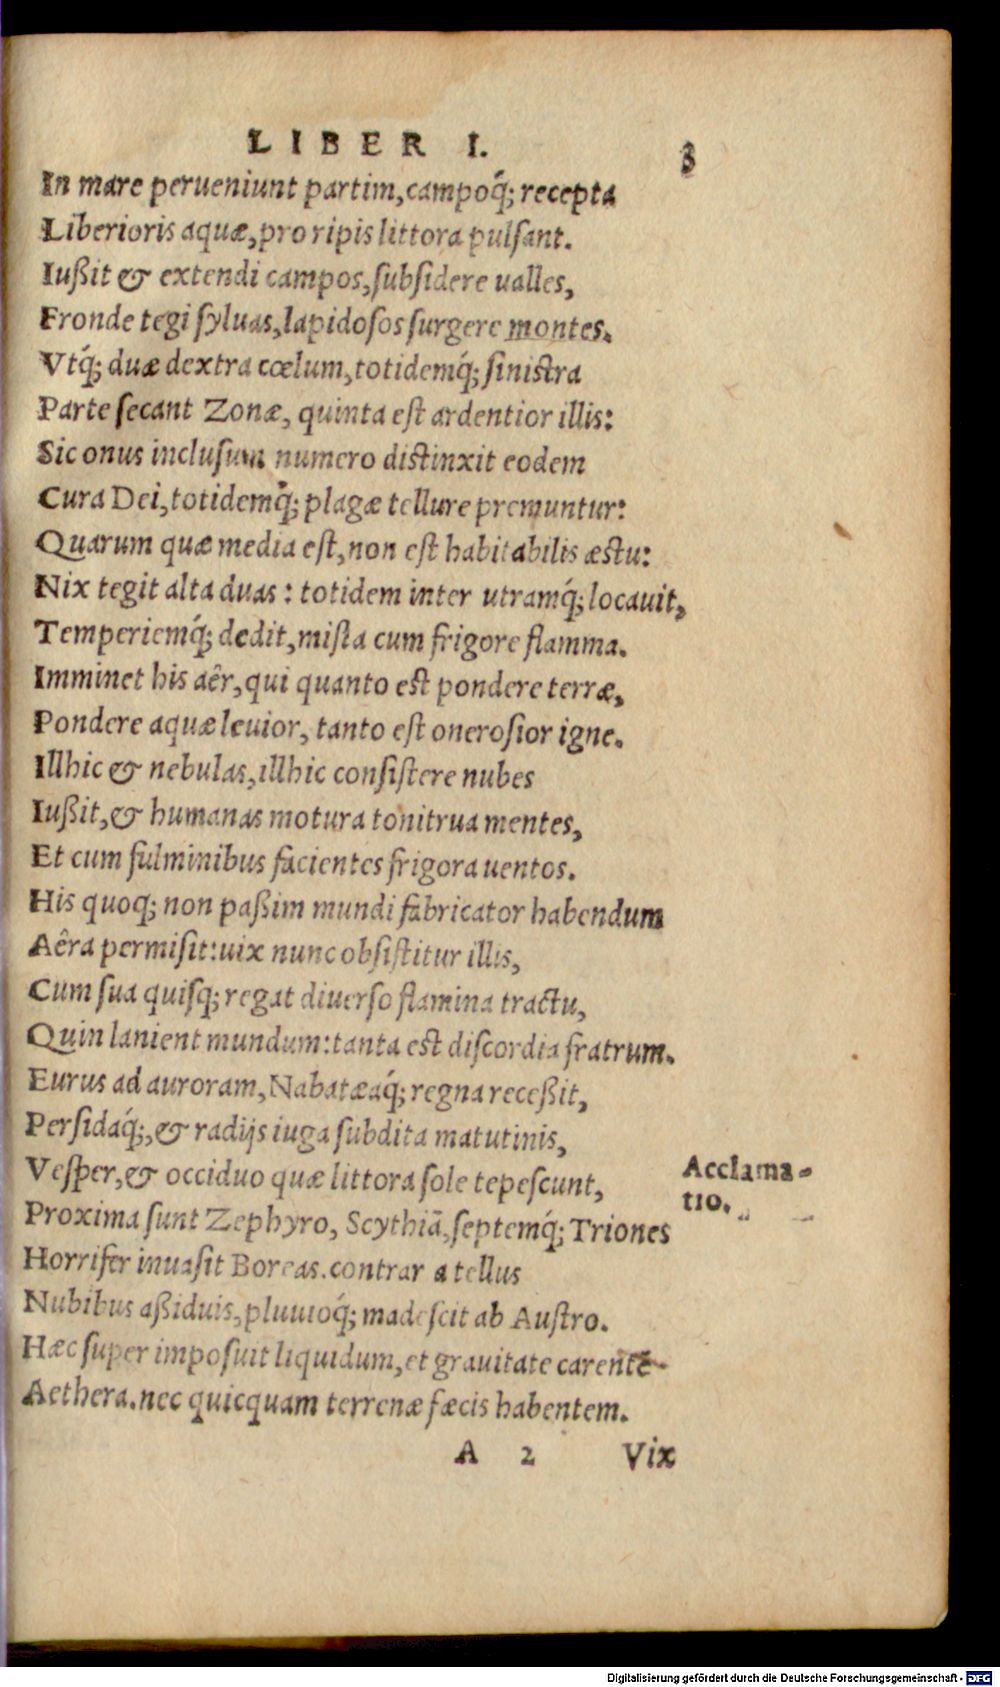 LIBER I. 3
In mare perueniunt partim, campoq́; recepta
Liberioris aquæ, pro ripis littora pulſant.
Iußit & extendi campos, ſubſidere ualles,
Fronde tegi ſyluas, lapidoſos ſurgere montes.
Vtq́; duæ dextra cœlum, totidemq́; ſiniſtra
Parte ſecant Zonæ, quinta eſt ardentior illis:
Sic onus incluſum numero diſtinxit eodem
Cura Dei, totidemq́; plagæ tellure premuntur:
Quarum quæ media eſt, non eſt habitabilis æſtu:
Nix tegit alta duas: totidem inter utramq́; locauit,
Temperiemq́; dedit, miſta cum frigore flamma.
Imminet his aêr, qui quanto eſt pondere terræ,
Pondere aquæ leuior, tanto eſt oneroſior igne.
Illhic & nebulas, illhic conſiſtere nubes
Iußit, & humanas motura tonitrua mentes,
Et cum fulminibus facientes frigora uentos.
His quoq; non paßim mundi fabricator habendum
Aêra permiſit: uix nunc obſiſtitur illis,
Cum ſua quiſq; regat diuerſo flamina tractu,
Quin lanient mundum: tanta eſt diſcordia fratrum.
Eurus ad auroram, Nabatæaq́; regna receßit,
Perſidaq́;, & radijs iuga ſubdita matutinis,
Veſper, & occiduo quæ littora ſole tepeſcunt,
Proxima ſunt Zephyro, Scythiā, ſeptemq́; Triones
Horrifer inuaſit Boreas. contrar a tellus
Nubibus aßiduis, pluuioq́; madeſcit ab Auſtro.
Hæc ſuper impoſuit liquidum, et grauitate carentē
Aethera. nec quicquam terrenæ fæcis habentem.
Acclama-
tio.
A 2 Vix
Digitalisierung gefördert durch die Deutsche Forschungsgemeinschaft - DFG